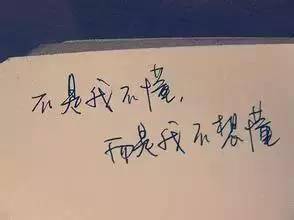 不是我不懂，
而是我不想懂